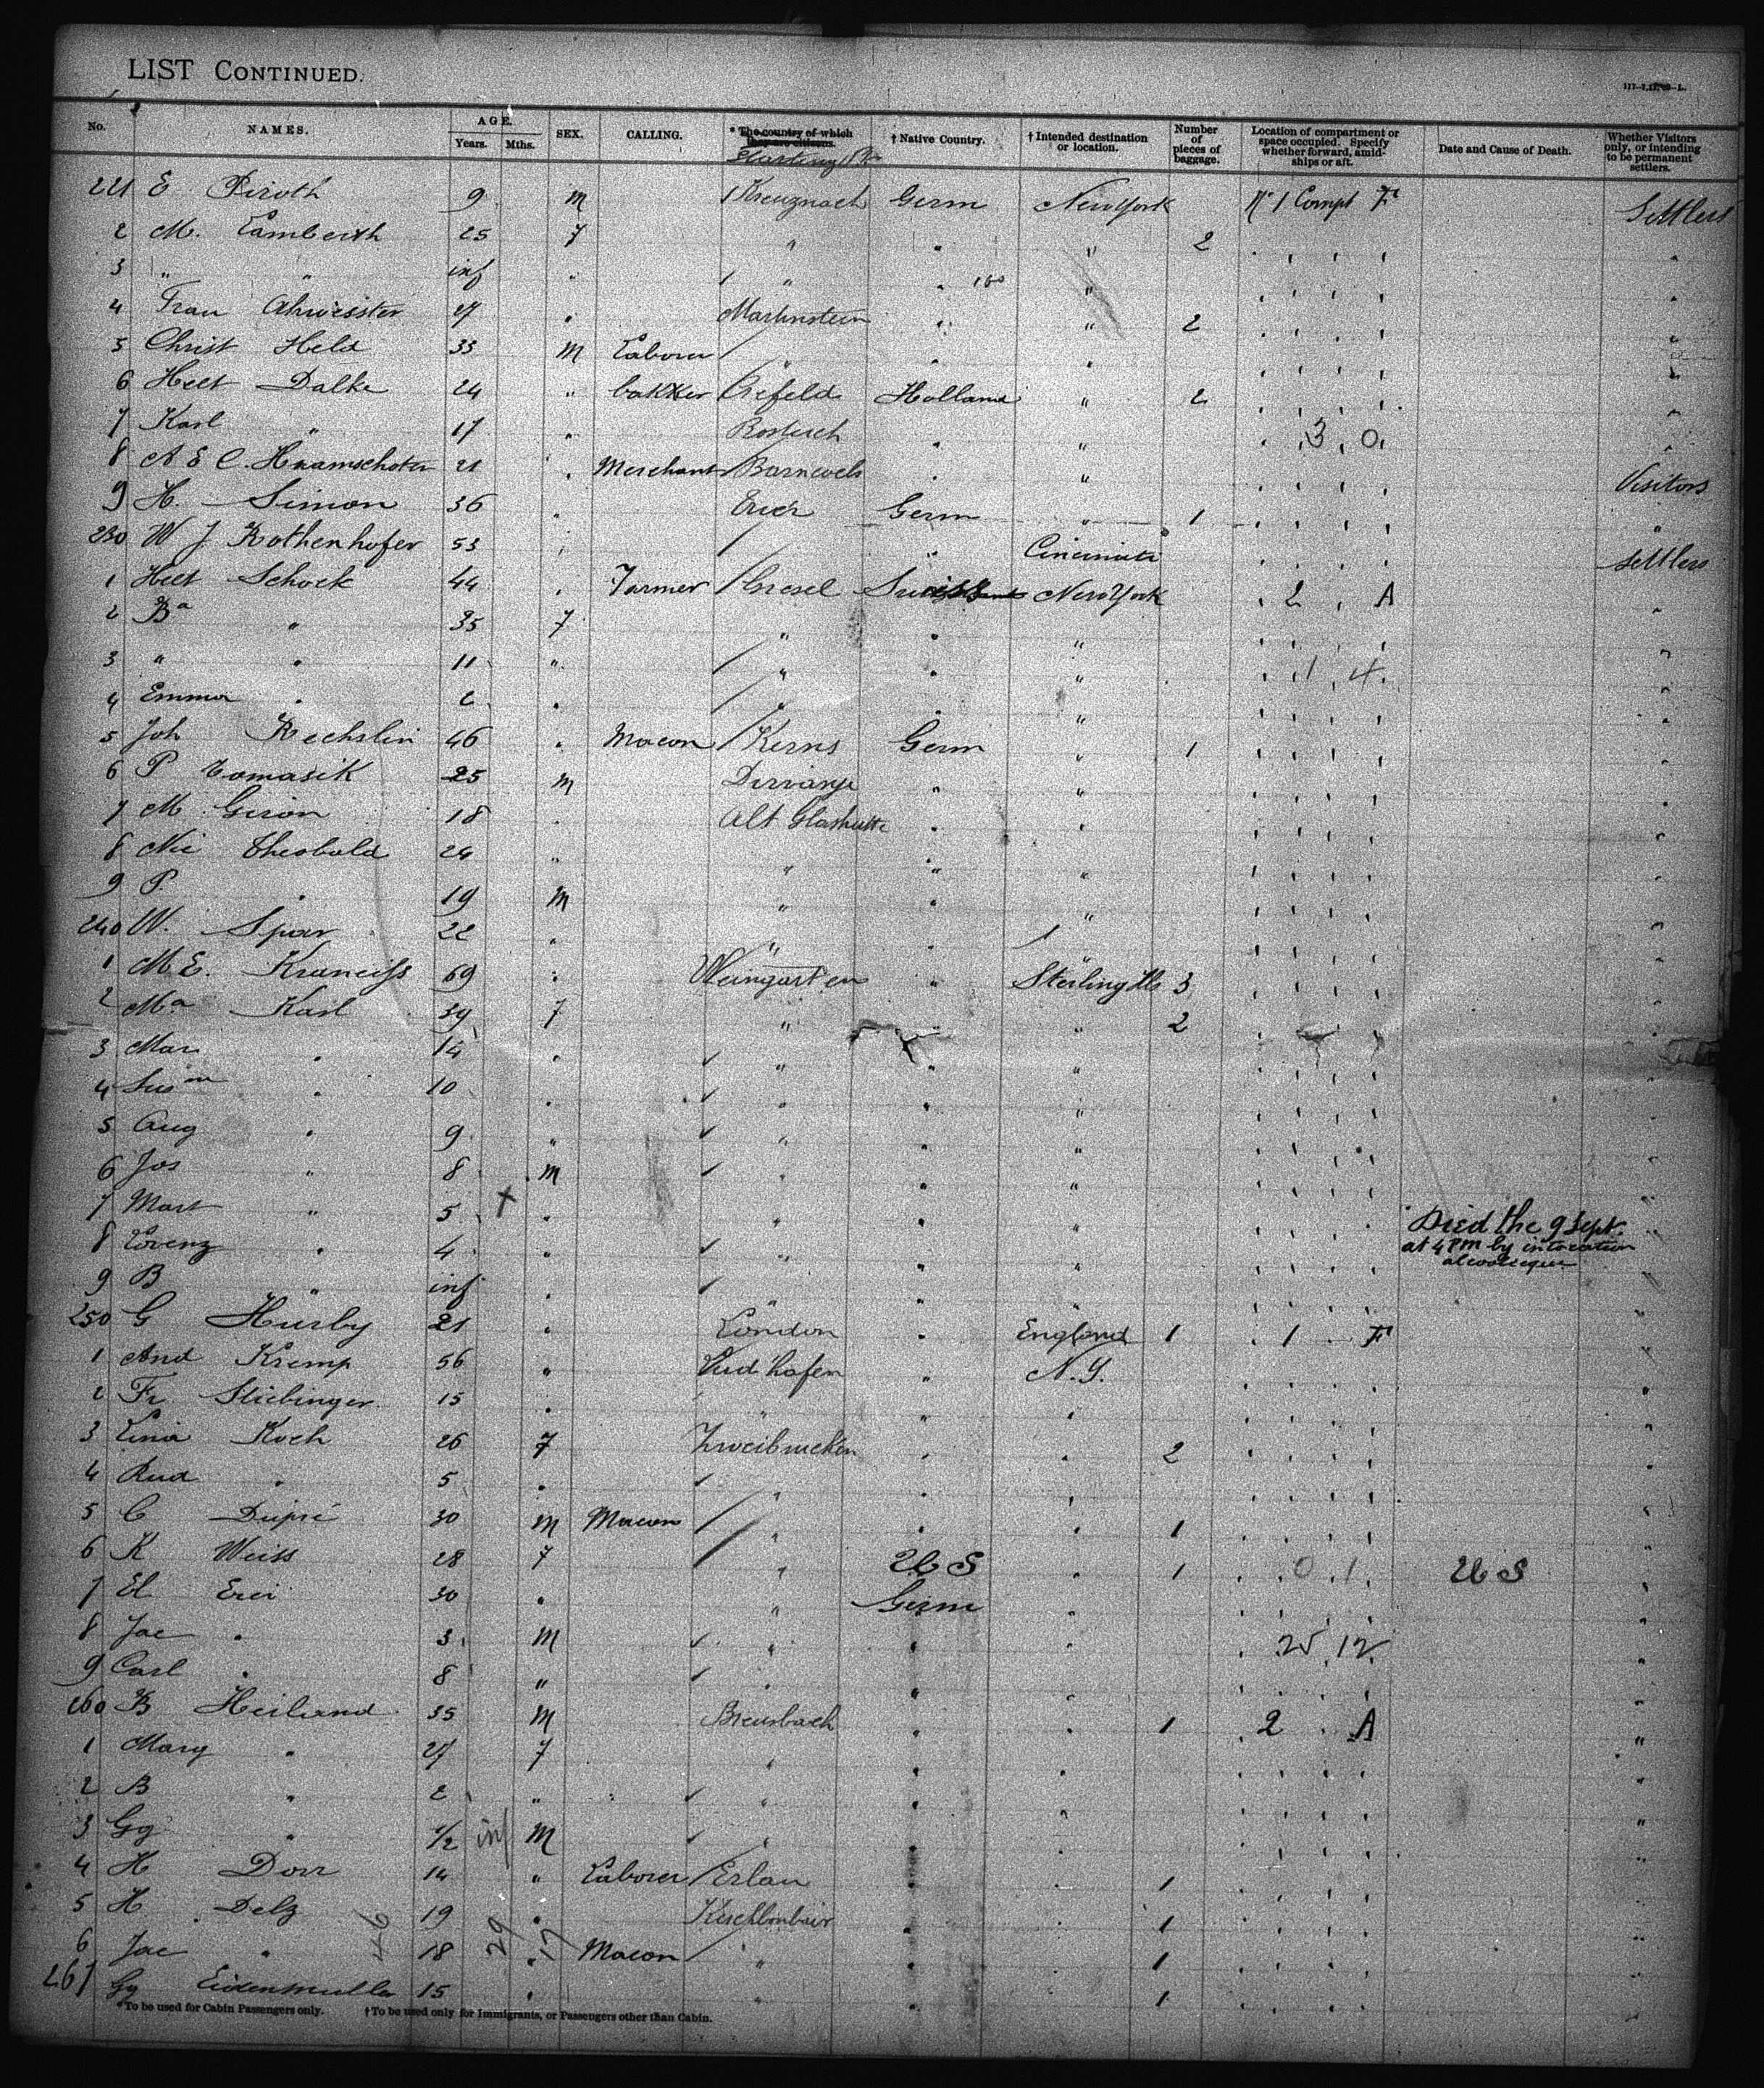 LIST CONTINUED.
No. NAMES. AGE. Years. Mths. SEX. CALLING. * The country of which they are citizens. † Native Country. † Intended destination or location. Number of pieces of baggage. Location of compartment or space occupied. Specify whether forward, amidships or aft. Date and Cause of Death. Whether Visitors only, or intending to be permanent settlers.
221 E Piroth 9 m Kreuznach Germ New York No 1 Compt F Settlers
2 M. Lamberth 25 f " " " 2
3 " " inf " " " 180 "
4 Frau 27 " Martinstein " " 2
5 Christ Held 33 M Laborer " " "
6 Hect Dalke 24 " bakker Crefeld Holland " 2
7 Karl " 17 " " " 3 0
8 A E C. 21 " Merchant Barneveld " " Visitors
9 H. Simon 36 " Germ " 1 "
230 W J Rothenhofer 53 " " Cincinati Settlers
1 Hect Schock 44 " Farmer Suisse New York 2 A
2 Ba " 35 f " " "
3 " " 11 " " " " 1 4
4 Emma " " " " "
5 Joh Rechslin 46 " Macon Kerns Germ " 1
6 P Tomasik 25 m " "
7 M Geron 18 " Alt Glashutte " "
8 Nic Theobald 24 " " " "
9 P. " 19 m " " "
240 W. Spar 22 " " "
1 M E. 69 " Weingarten " Sterling Ills 3
2 Ma Karl 39 f " " " 2
3 Mar " 14 " " " "
4 " 10 " " " "
5 Aug " 9 " " " "
6 Jos " 8 m " " "
7 Mart " 5 + " " " " Died the 9 Sept.
at 4 PM by intoxication
8 Lorenz " 4 " " " "
9 B " inf " " " "
250 G Hursby 21 " London " England 1 1 F
1 And Kremp 56 " Lud'hafen " N.Y.
2 Fr. Stiebinger 15 " " " "
3 Lina Koch 26 f Zweibrucken " " 2
4 Rud " 5 " " " "
5 C Dupré 30 m Macon " " " 1
6 K Weiss 28 f " U S " 1 0 1 U S
7 El 30 " " Germ "
8 Jac " 3 m " " " 25 12
9 Carl " 8 " " " "
260 B Heiland 35 m " " 1 2 A
1 Mary " 27 f " " "
2 B " 2 " " " "
3 Gg " 1/2 inf M " " "
4 H Dorr 14 " Laborer Erlau " " 1
5 H Delz 19 " " " 1
6 Jac " 18 " Macon " " " 1
267 Gg Eidenmuller 15 " " " " 1
*To be used for Cabin Passengers only. †To be used only for Immigrants, or Passengers other than Cabin.